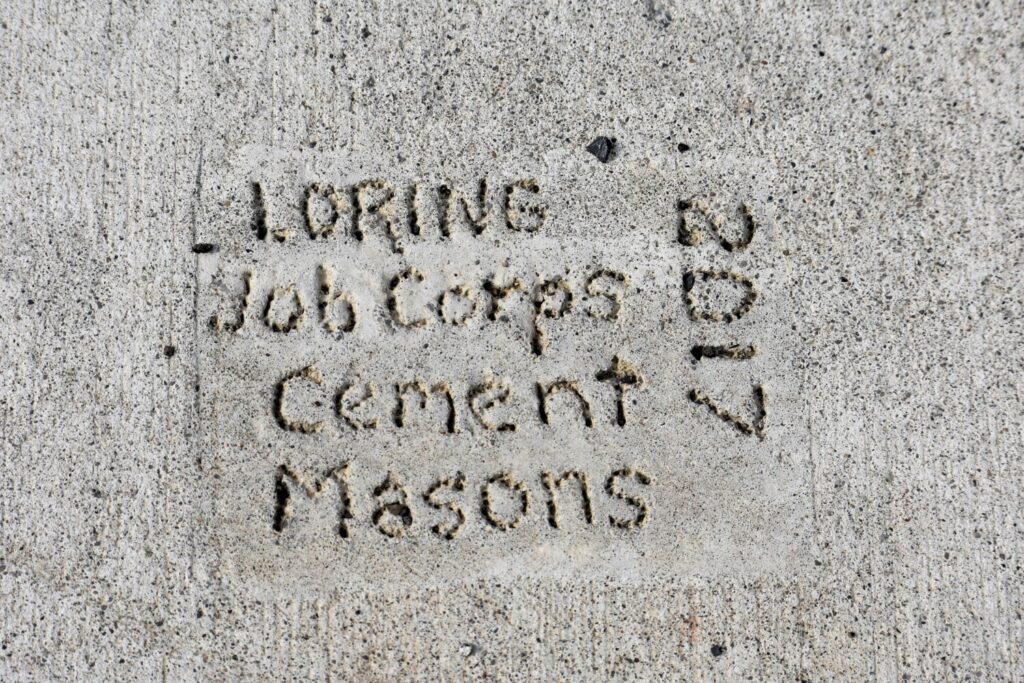 LORING
Job Corps
Cement
Masons
2017